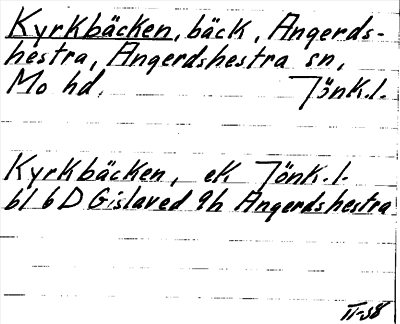 Kyrkbäcken, bäck, Angerds-
hestra, Angerdshestra sn,
Mo hd. Jönk.l.
Kyrkbäcken, ek. Jönk.l.
bl 6D Gislaved 9h Angerdshestra
II-58